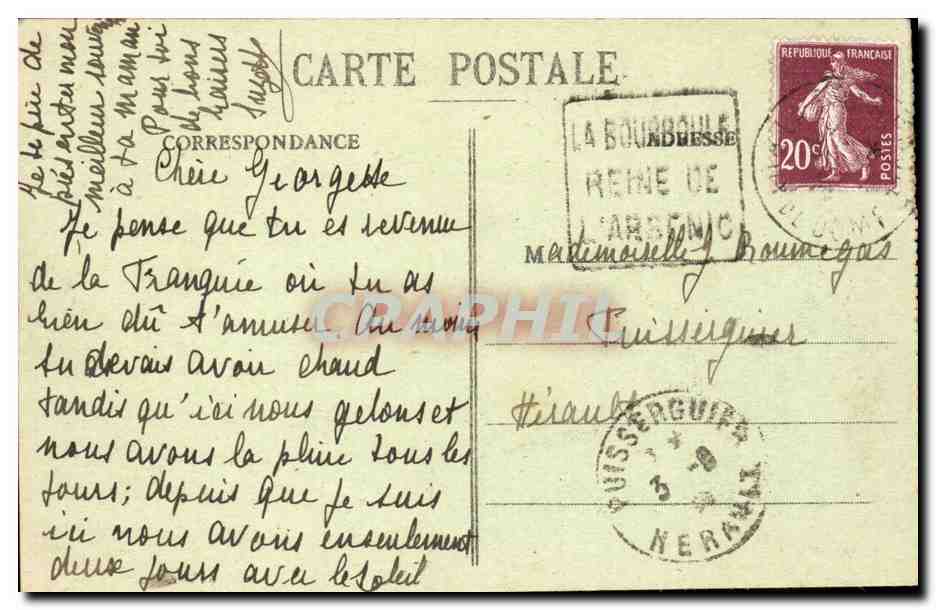 CARTE POSTALE
CORRESPONDANCE
ADRESSE
Chère Georgette
Je pense que tu es revenue
de la Tranquie où tu as
bien dû t'amuser. Au moins
tu devais avoir chaud
tandis qu'ici nous gelons et
nous avons la pluie tous les
jours; depuis que je suis
ici nous avons eu seulement
deux jours avec le soleil
Je te prie de
présenter mon
meilleur souvenir
à ta maman
Pour toi
de bons
baisers
LA BOURBOULE
REINE DE
L'ARSENIC
REPUBLIQUE FRANÇAISE
20c
POSTES
DE DOME
Mademoiselle J Roumegas
Puisserguier
Hérault
PUISSERGUIER
3
HERAULT
CRAPHIL